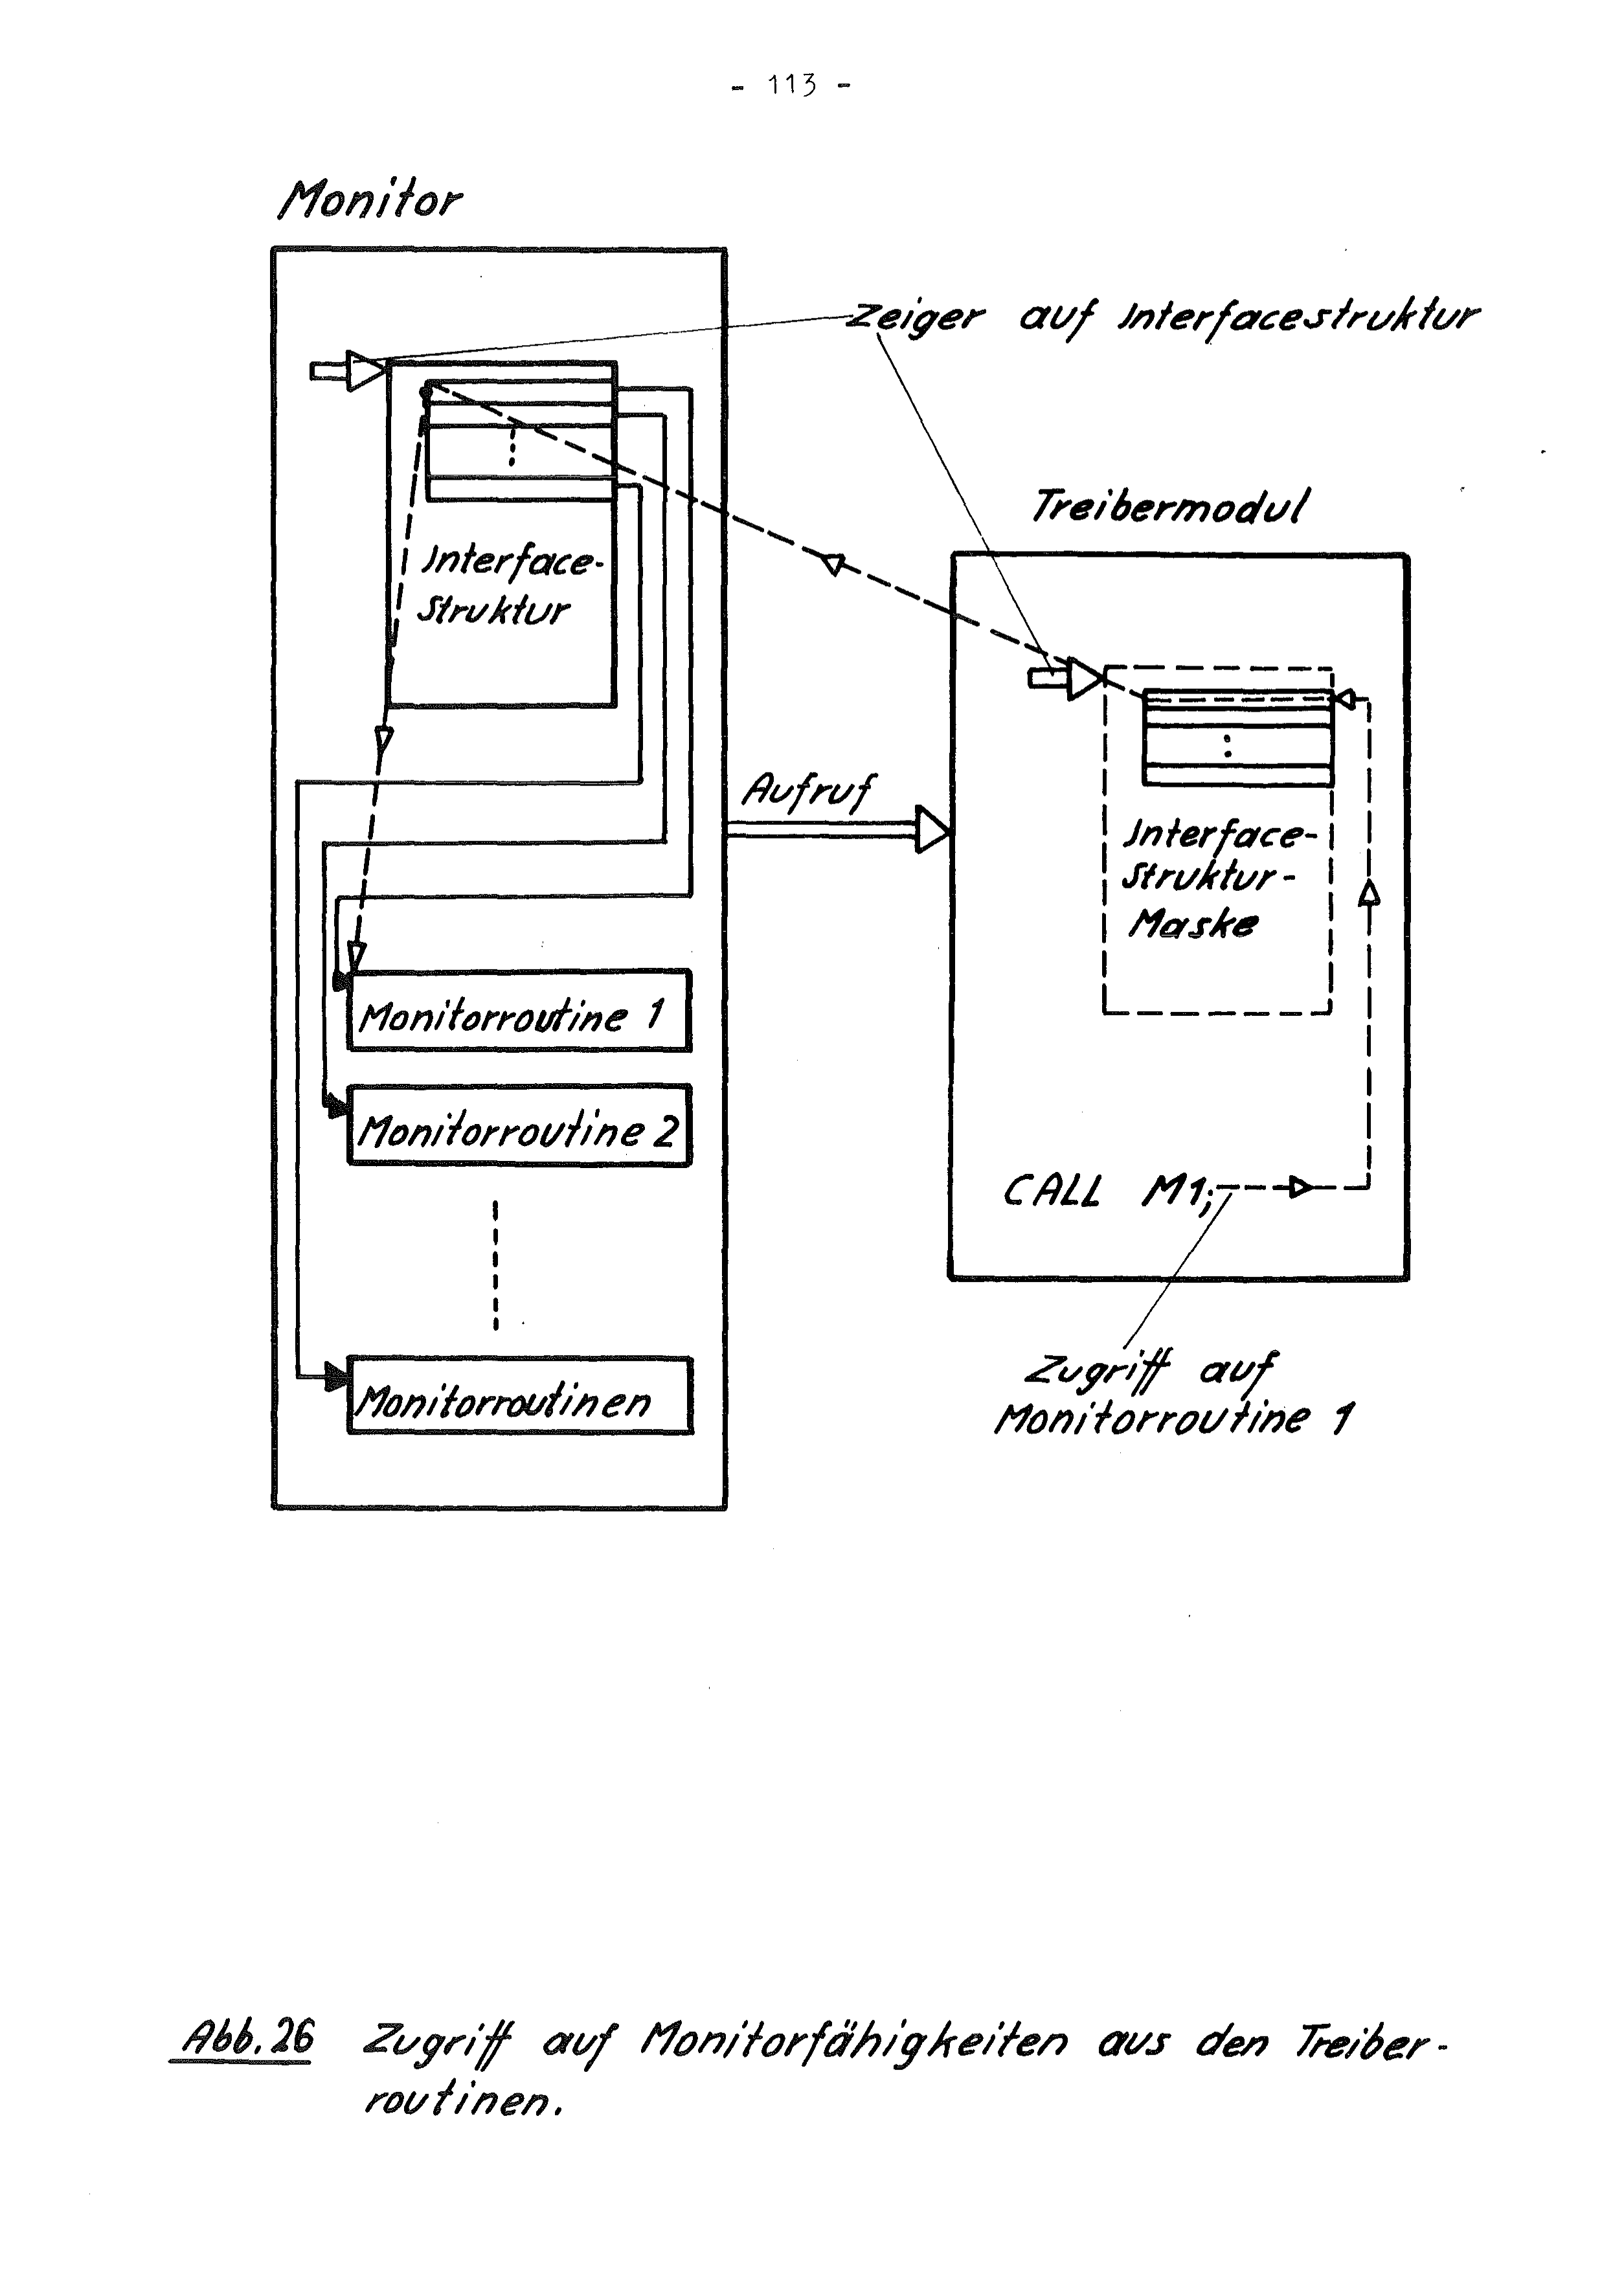 - 113 -
Monitor
Zeiger auf Interfacestruktur
Treibermodul
Interface-
Struktur
Aufruf
Interface-
Struktur-
Maske
Monitorroutine 1
Monitorroutine 2
CALL M1;
Monitorroutinen
Zugriff auf
Monitorroutine 1
Abb. 26 Zugriff auf Monitorfähigkeiten aus den Treiber-
routinen.